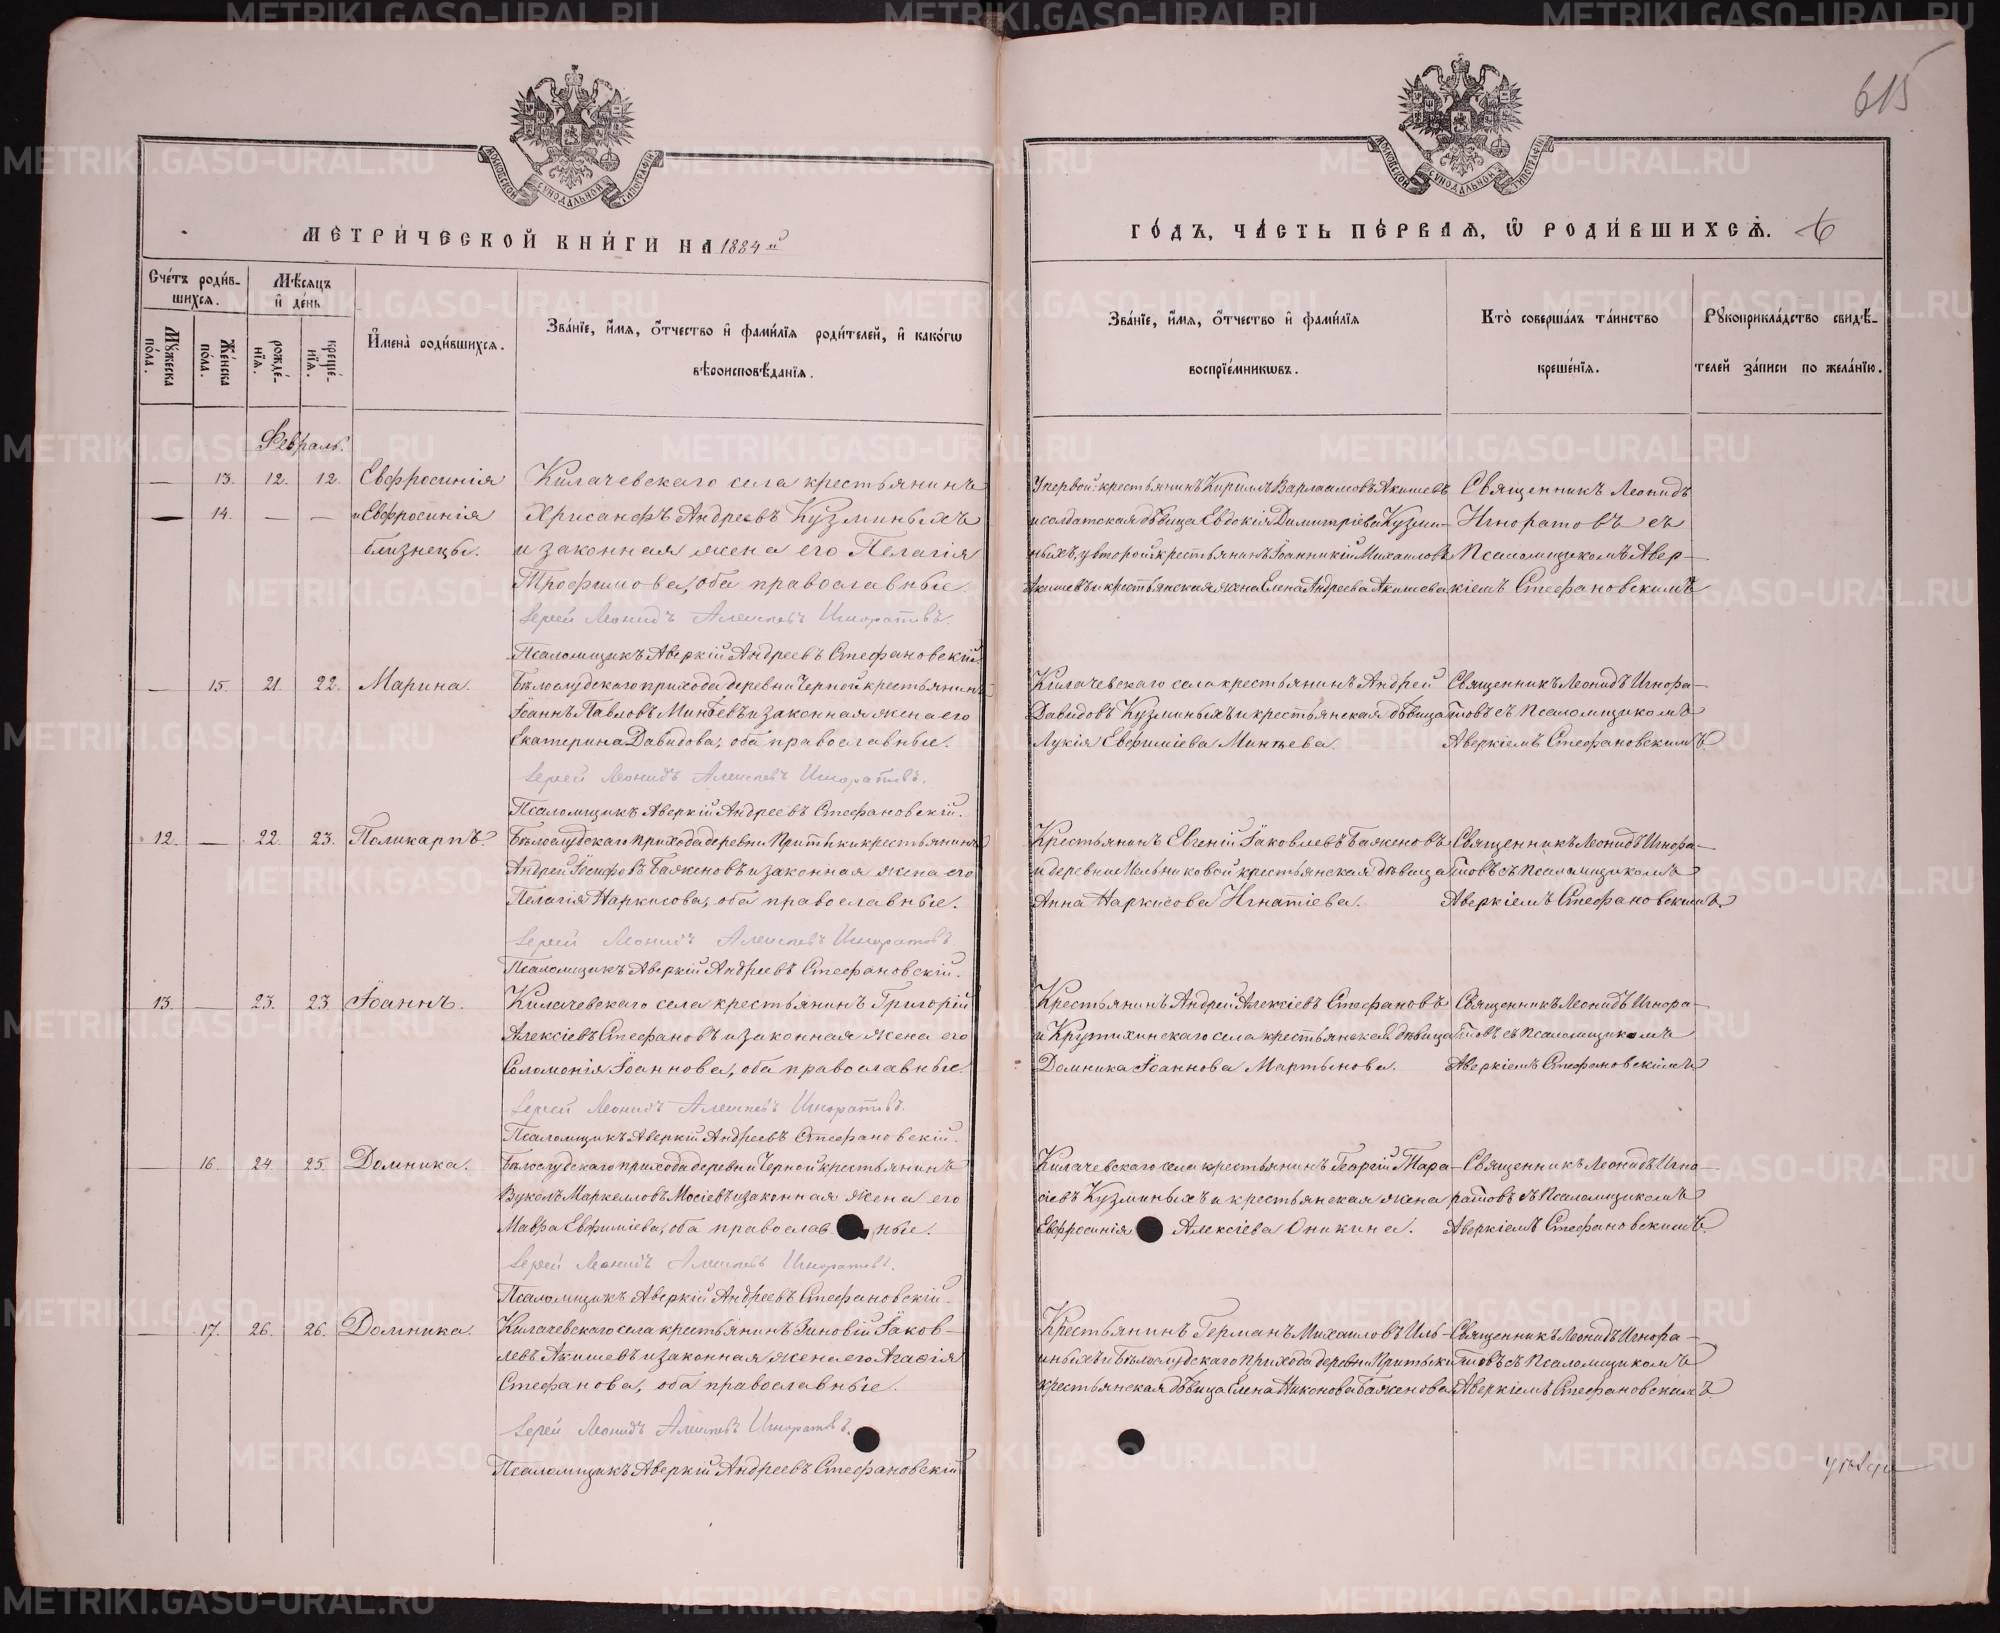 615
МОСКОВСКОЙ СѴНОДАЛЬНОЙ ТИПОГРАФІИ
МОСКОВСКОЙ СѴНОДАЛЬНОЙ ТИПОГРАФІИ
МЕТРИ́ЧЕСКОЙ КНИ́ГИ НА 1884й
ГО́ДЪ, ЧА́СТЬ ПЕ́РВАЯ, Ѡ҆ РОДИ́ВШИХСЯ. 6
Сче́тъ роди́в-
шихся.
Мѣ́сяцъ
и҆ де́нь
Мꙋ́жеска
по́ла.
Же́нска
по́ла.
рожде́-
нїя.
креще́-
нїя.
И҆мена̀ роди́вшихся.
Зва́нїе, и҆́мя, ѻ҆́тчество и҆ фами́лїя роди́телей, и҆ како́гѡ
вѣроисповѣ́данїя.
Зва́нїе, и҆́мя, ѻ҆́тчество и҆ фами́лїя
воспрїе́мникѡвъ.
Кто̀ соверша́лъ та́инство
креще́нїя.
Рꙋкоприкла́дство свидѣ́-
телей за́писи по жела́нїю.
Февраль.
— 13. 12. 12. Евфросинія
— 14. — — и Евфросинія
близнецы.
Килачевскаго села крестьянинъ
Хрисанфъ Андреевъ Кузминыхъ
и законная жена его Пелагія
Трофимова, оба православные.
Іерей Леонидъ Алексѣевъ Игноратовъ.
Псаломщикъ Аверкій Андреевъ Стефановскій.
У первой: крестьянинъ Кирилъ Варлаамовъ Акишевъ
и солдатская дѣвица Евдокія Димитріева Кузми-
ныхъ, у второй: крестьянинъ Іоанникій Михаиловъ
Акишевъ и крестьянская жена Елена Андреева Акишева
Священникъ Леонидъ
Игноратовъ съ
Псаломщикомъ Авер-
кіемъ Стефановскимъ
— 15. 21. 22. Марина.
Бѣлослудскаго прихода деревни Черной крестьянинъ
Іоаннъ Павловъ Минѣевъ и законная жена его
Екатерина Давидова, оба православные.
Іерей Леонидъ Алексѣевъ Игноратовъ.
Псаломщикъ Аверкій Андреевъ Стефановскій.
Килачевскаго села крестьянинъ Андрей
Давидовъ Кузминыхъ и крестьянская дѣвица
Лукія Евфиміева Минѣева.
Священникъ Леонидъ Игнора-
товъ съ Псаломщикомъ
Аверкіемъ Стефановскимъ.
12. — 22. 23. Поликарпъ.
Бѣлослудскаго прихода деревни Притыки крестьянинъ
Андрей Іосифовъ Баженовъ и законная жена его
Пелагія Наркисова, оба православные.
Іерей Леонидъ Алексѣевъ Игноратовъ
Псаломщикъ Аверкій Андреевъ Стефановскій.
Крестьянинъ Евгеній Іаковлевъ Баженовъ
и деревни Мельниковой крестьянская дѣвица
Анна Наркисова Игнатіева.
Священникъ Леонидъ Игнора-
товъ съ Псаломщикомъ
Аверкіемъ Стефановскимъ.
13. — 23. 23. Іоаннъ.
Килачевскаго села крестьянинъ Григорій
Алексіевъ Стефановъ и законная жена его
Соломонія Іоаннова, оба православные.
Іерей Леонидъ Алексѣевъ Игноратовъ.
Псаломщикъ Аверкій Андреевъ Стефановскій.
Крестьянинъ Андрей Алексіевъ Стефановъ
и Крутихинскаго села крестьянская дѣвица
Домника Іоаннова Мартынова.
Священникъ Леонидъ Игнора-
товъ съ Псаломщикомъ
Аверкіемъ Стефановскимъ
— 16. 24. 25. Домника.
Бѣлослудскаго прихода деревни Черной крестьянинъ
Вуколъ Маркелловъ Мосіевъ и законная жена его
Мавра Евфиміева, оба православные.
Іерей Леонидъ Алексѣевъ Игноратовъ.
Псаломщикъ Аверкій Андреевъ Стефановскій.
Килачевскаго села крестьянинъ Георгій Тара-
сіевъ Кузминыхъ и крестьянская жена
Евфросинія Алексіева Оникина.
Священникъ Леонидъ Игно-
ратовъ съ Псаломщикомъ
Аверкіемъ Стефановскимъ.
— 17. 26. 26. Домника.
Килачевскаго села крестьянинъ Зиновій Іаков-
левъ Акишевъ и законная жена его Агафія
Стефанова, оба православные.
Іерей Леонидъ Алексѣевъ Игноратовъ.
Псаломщикъ Аверкій Андреевъ Стефановскій
Крестьянинъ Германъ Михаиловъ Иль-
иныхъ и Бѣлослудскаго прихода деревни Притыки
крестьянская дѣвица Елена Никонова Баженова
Священникъ Леонидъ Игнора-
товъ съ Псаломщикомъ
Аверкіемъ Стефановскимъ.
METRIKI.GASO-URAL.RU